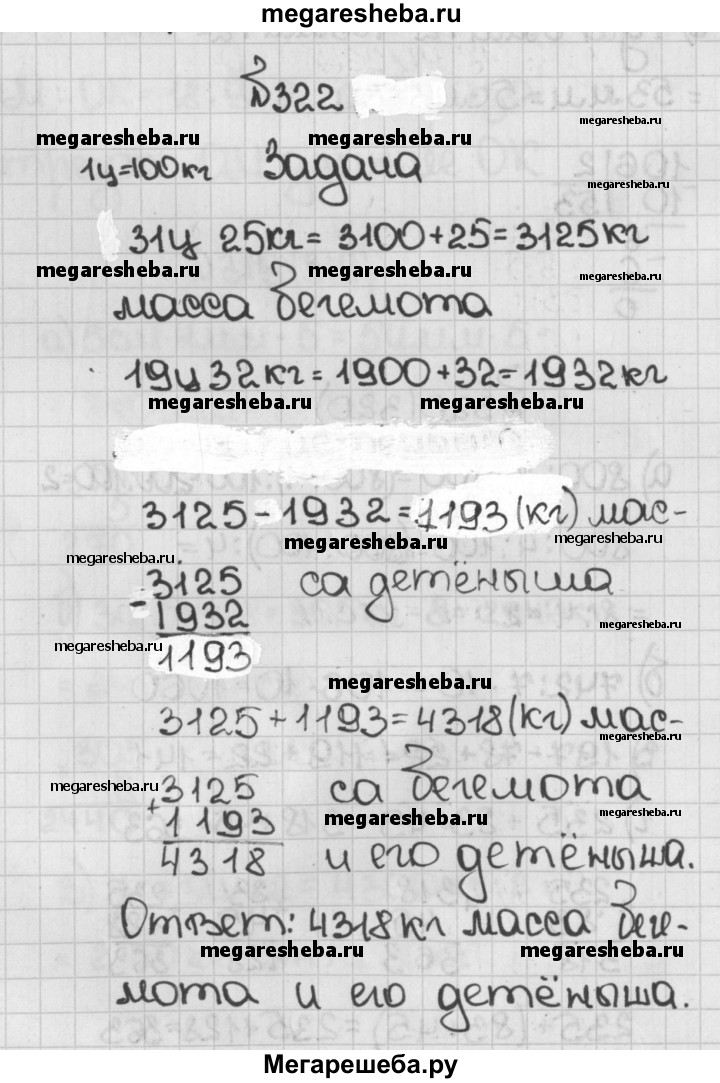 megaresheba.ru
№322
megaresheba.ru megaresheba.ru megaresheba.ru
1ц=100кг Задача
megaresheba.ru
31ц 25кг = 3100+25=3125кг
megaresheba.ru megaresheba.ru megaresheba.ru
масса бегемота
19ц 32кг = 1900+32=1932кг
megaresheba.ru megaresheba.ru
3125-1932=1193(кг) мас-
megaresheba.ru megaresheba.ru
megaresheba.ru
-3125 са детёныша
1932
megaresheba.ru
megaresheba.ru
1193
megaresheba.ru
3125+1193=4318(кг) мас-
megaresheba.ru
megaresheba.ru
+3125 са бегемота
1193 megaresheba.ru megaresheba.ru
4318 и его детёныша.
Ответ: 4318кг масса беге-
megaresheba.ru megaresheba.ru
мота и его детёныша.
Мегарешеба.ру